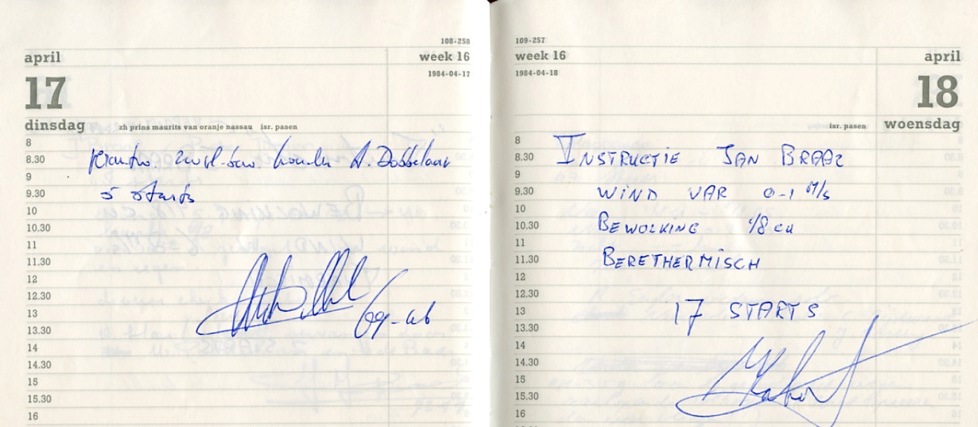 108-258
april
week 16
1984-04-17
17
dinsdag
zh prins maurits van oranje nassau isr. pasen
8
8.30
9
9.30
5 starts
10
10.30
11
11.30
12
12.30
13
13.30
14
14.30
15
15.30
16
109-257
week 16
april
1984-04-18
18
isr. pasen
woensdag
8
8.30 INSTRUCTIE JAN BRAAZ
9
9.30 WIND VAR 0-1 M/s
10
10.30 BEWOLKING 1/8 cu
11
11.30 BERETHERMISCH
12
12.30
13 17 STARTS
13.30
14
14.30
15
15.30
16